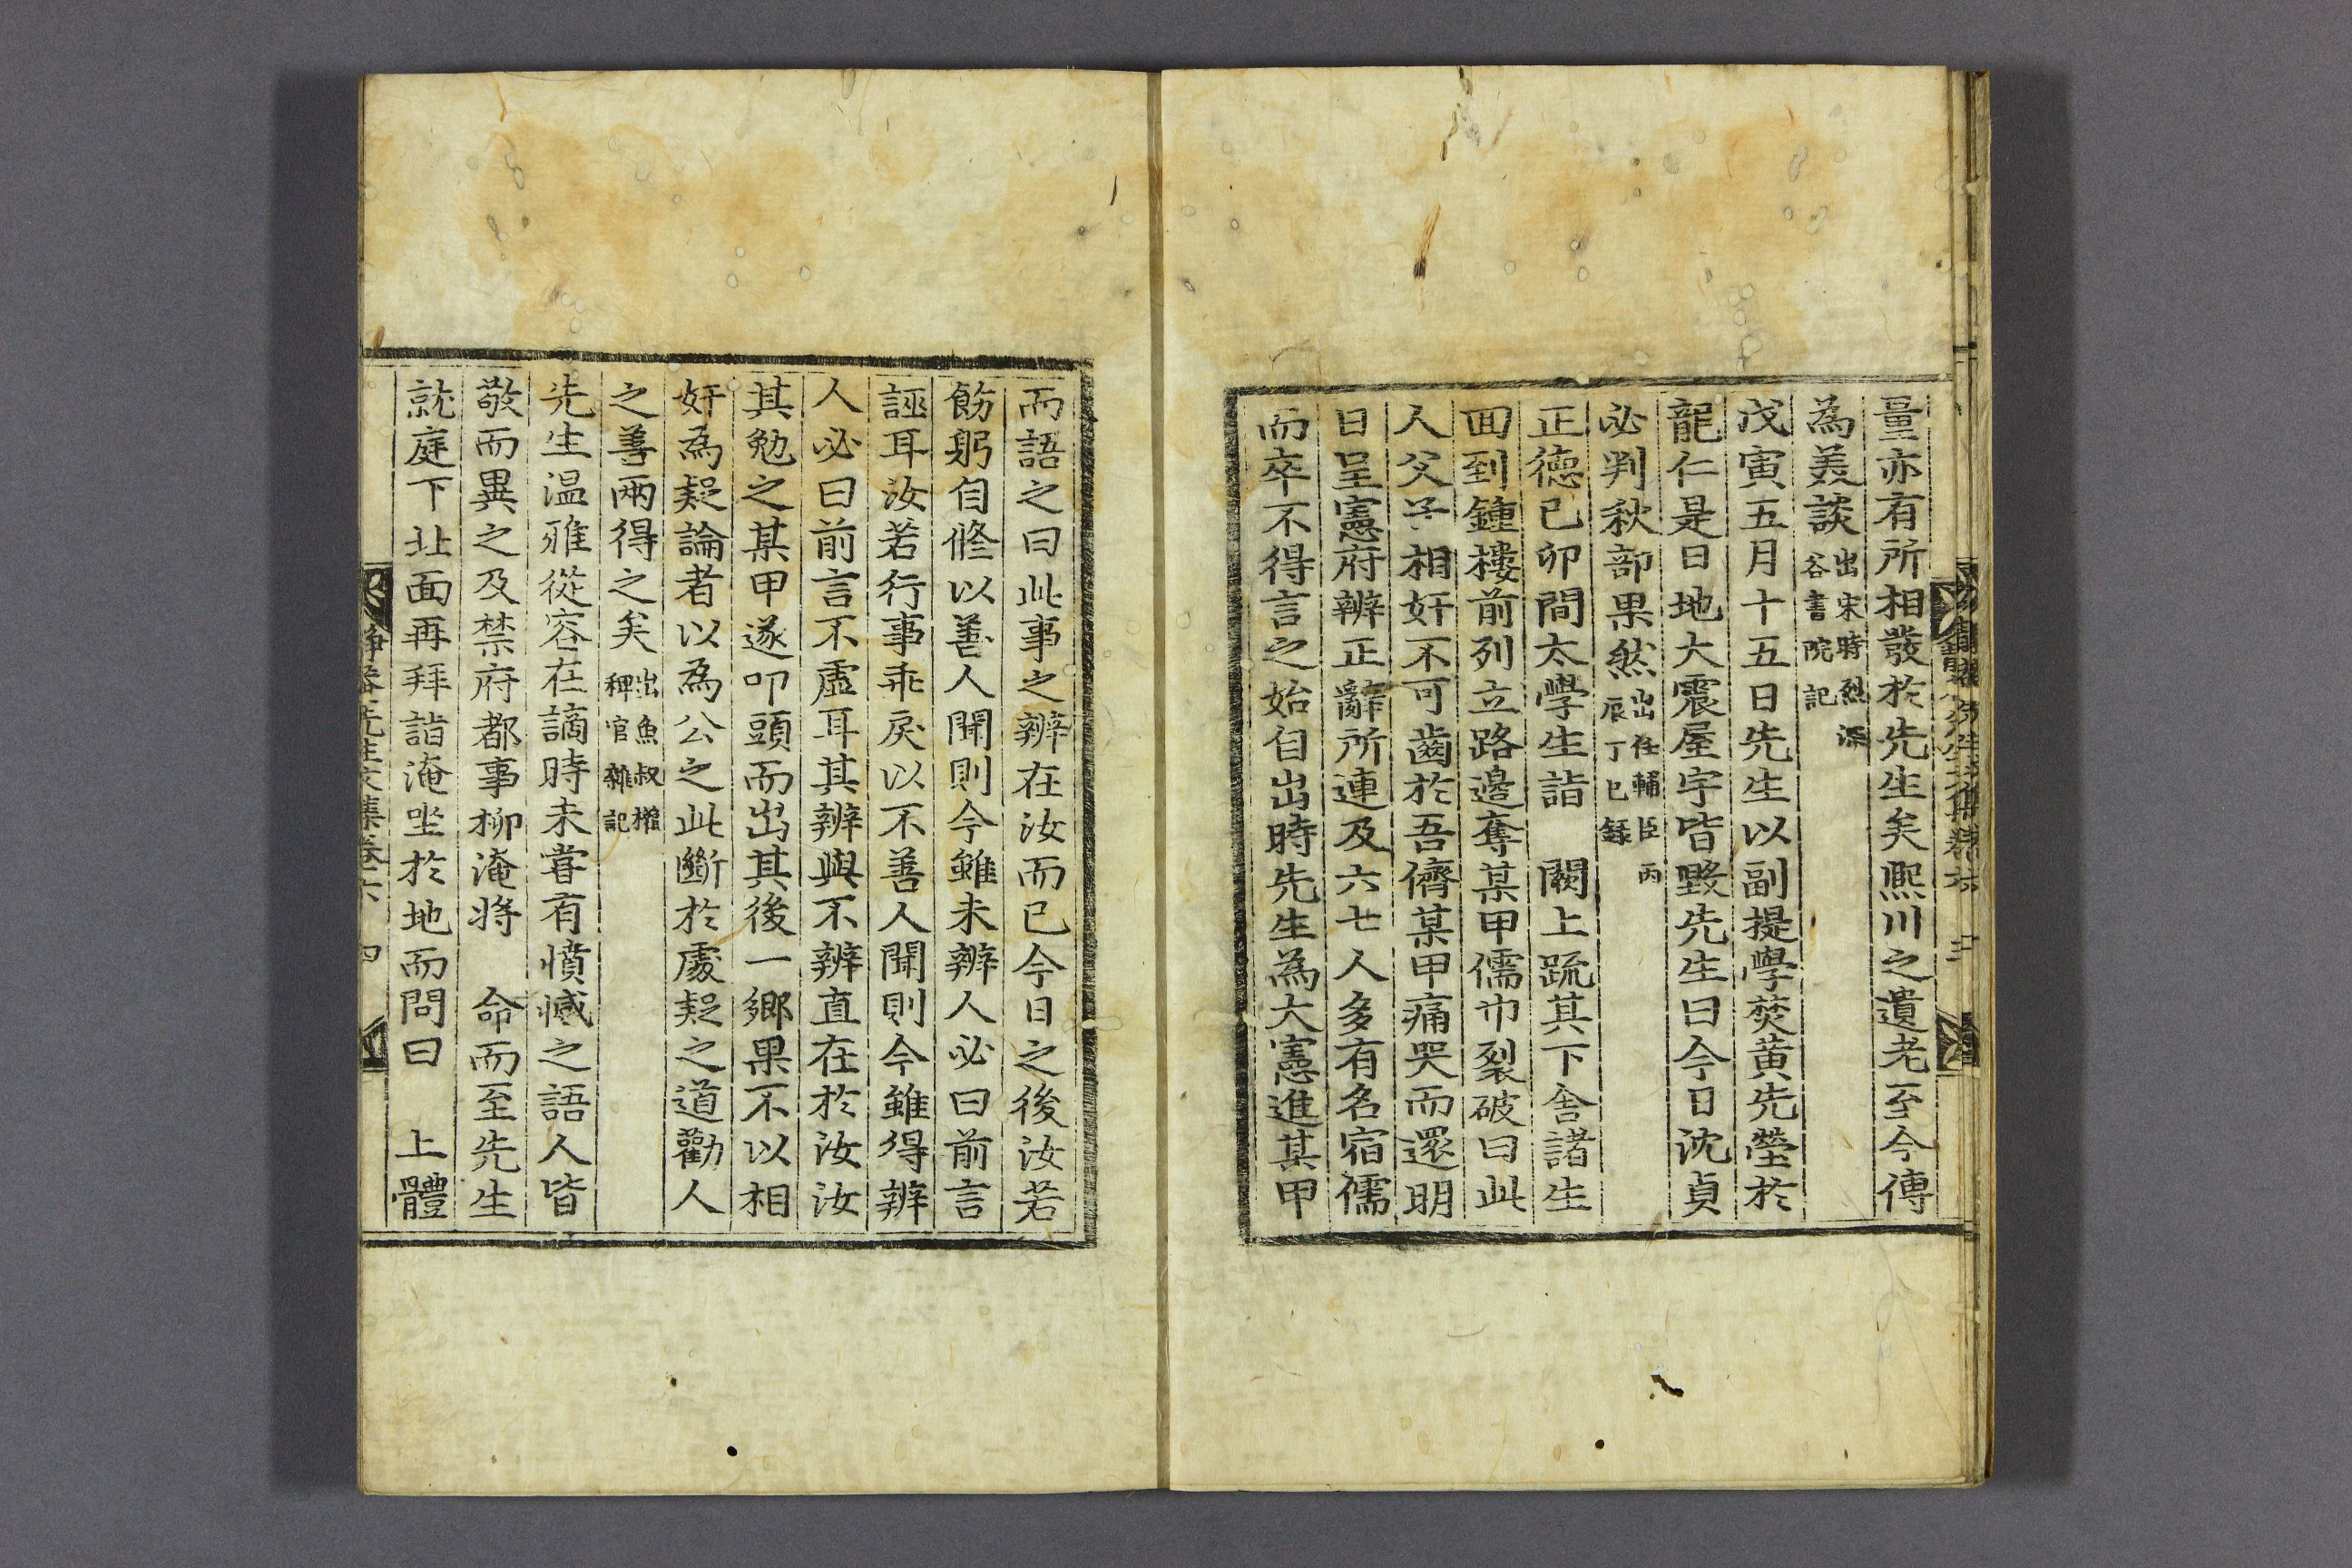 量亦有所相發於先生矣熈川之遺老至今傳
為美談出宋時烈深谷書院記
戊寅五月十五日先生以副提學焚黄先塋於
龍仁是日地大震屋宇皆毀先生曰今日沈貞
必判秋部果然出任輔臣丙辰丁巳録
正德己卯間太學生詣　闕上疏其下舎諸生
回到鍾樓前列立路邊奪某甲儒巾裂破曰此
人父子相奸不可齒於吾儕某甲痛哭而還明
日呈憲府辨正辭所連及六七人多有名宿儒
而卒不得言之始自出時先生為大憲進某甲
而語之曰此事之辨在汝而已今日之後汝若
飭躬自修以善人聞則今雖未辨人必曰前言
誣耳汝若行事乖戾以不善人聞則今雖得辨
人必曰前言不虛耳其辨與不辨直在於汝汝
其勉之某甲遂叩頭而出其後一鄉果不以相
奸為疑論者以為公之此斷於處疑之道勸人
之善兩得之矣出魚叔權稗官雜記
先生温雅從容在謫時未嘗有憤慽之語人皆
敬而異之及禁府都事柳淹將　命而至先生
就庭下北面再拜詣淹坐於地而問曰　上體
静菴先生文集卷六　四